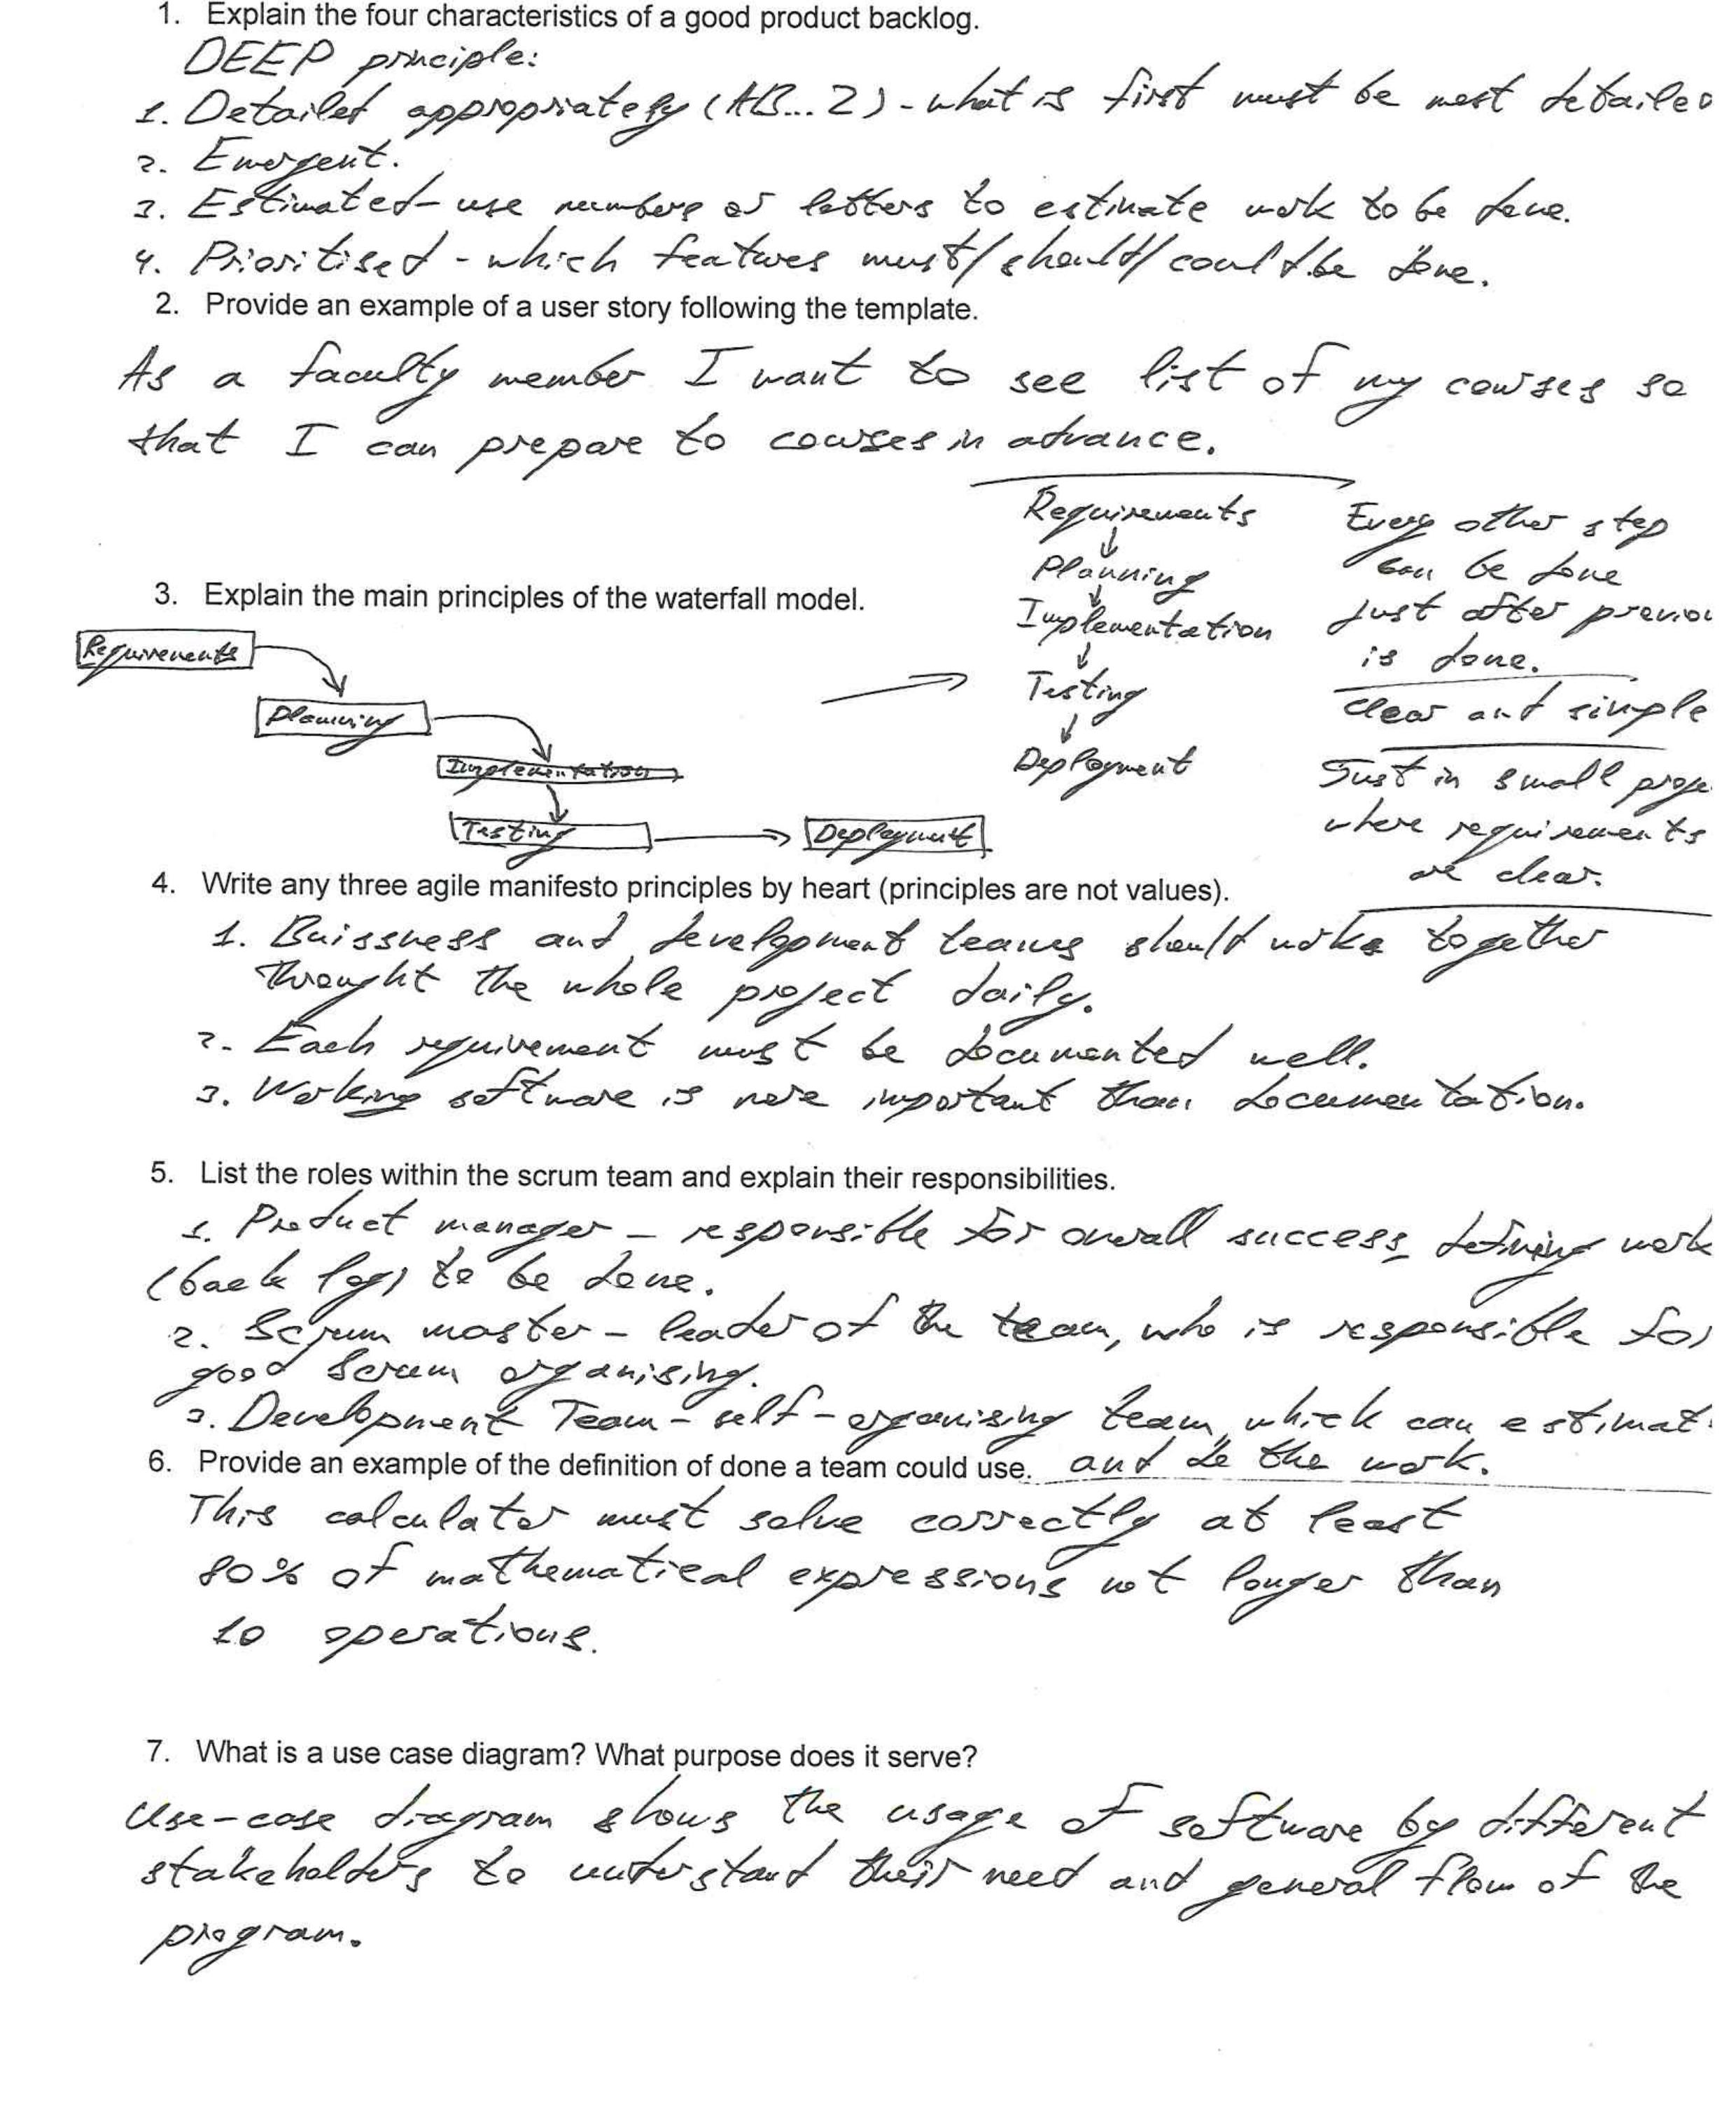 1. Explain the four characteristics of a good product backlog.
DEEP principle:
1. Detailed appropriately (AB...Z) - what is first must be most detailed
2. Emergent.
3. Estimated - use numbers or letters to estimate work to be done.
4. Prioritised - which features must/should/could be done.
2. Provide an example of a user story following the template.
As a faculty member I want to see list of my courses so
that I can prepare to courses in advance.
3. Explain the main principles of the waterfall model.
Requirements
Planning
Implementation
Testing
Deployment
Requirements
Planning
Implementation
Testing
Deployment
Every other step
can be done
just after previou
is done.
clear and simple
Just in small proje
where requirements
are clear.
4. Write any three agile manifesto principles by heart (principles are not values).
1. Buissness and development teams should work together
throught the whole project daily.
2. Each requirement must be documented well.
3. Working software is more important than documentation.
5. List the roles within the scrum team and explain their responsibilities.
1. Product manager - responsible for overall success, defining work
(back log) to be done.
2. Scrum master - leader of the team, who is responsible for
good Scrum organising.
3. Development Team - self-organising team, which can estimat
and do the work.
6. Provide an example of the definition of done a team could use.
This calculator must solve correctly at least
80% of mathematical expressions not longer than
10 operations.
7. What is a use case diagram? What purpose does it serve?
Use-case diagram shows the usage of software by different
stakeholders to understand their need and general flow of the
program.